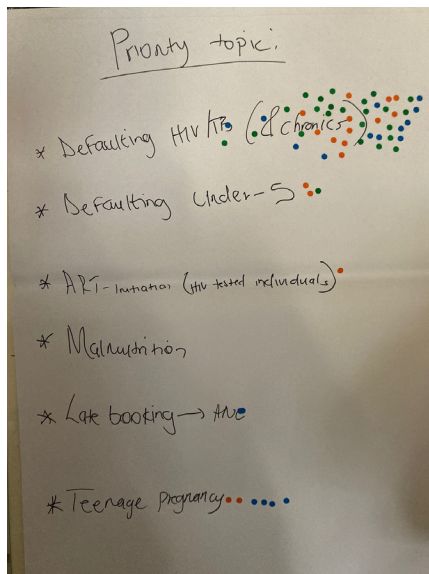 Priority topic:
* Defaulting HIV/TB (& chronics)
* Defaulting Under-5
* ART-initiation (HIV tested individuals)
* Malnutrition
* Late booking → ANC
* Teenage Pregnancy